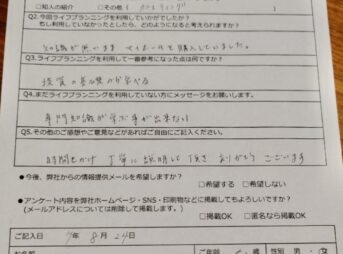 □知人の紹介 □その他(
Q2.今回ライフプランニングを利用していかがでしたか?
もし利用していなかったとしたら、どのようになると考えられますか?
知識が無いまま マイホームを購入していました。
Q3.ライフプランニングを利用して一番参考になった点は何ですか?
投資の基礎が学べる
Q4.まだライフプランニングを利用していない方にメッセージをお願いします。
専門知識が学ぶ事が出来ない
Q5.その他のご感想やご意見などがあればご自由にご記入ください。
時間をかけ 丁寧に説明して頂き ありがとうございます
● 今後、弊社からの情報提供メールを希望しますか?
□希望する □希望しない
● アンケート内容を弊社ホームページ・SNS・印刷物などに掲載してもよろしいですか?
(メールアドレスについては削除して掲載します。)
□掲載OK □匿名なら掲載OK
ご記入日 7年 8月 24日
ご年齢 歳 性別 男・女